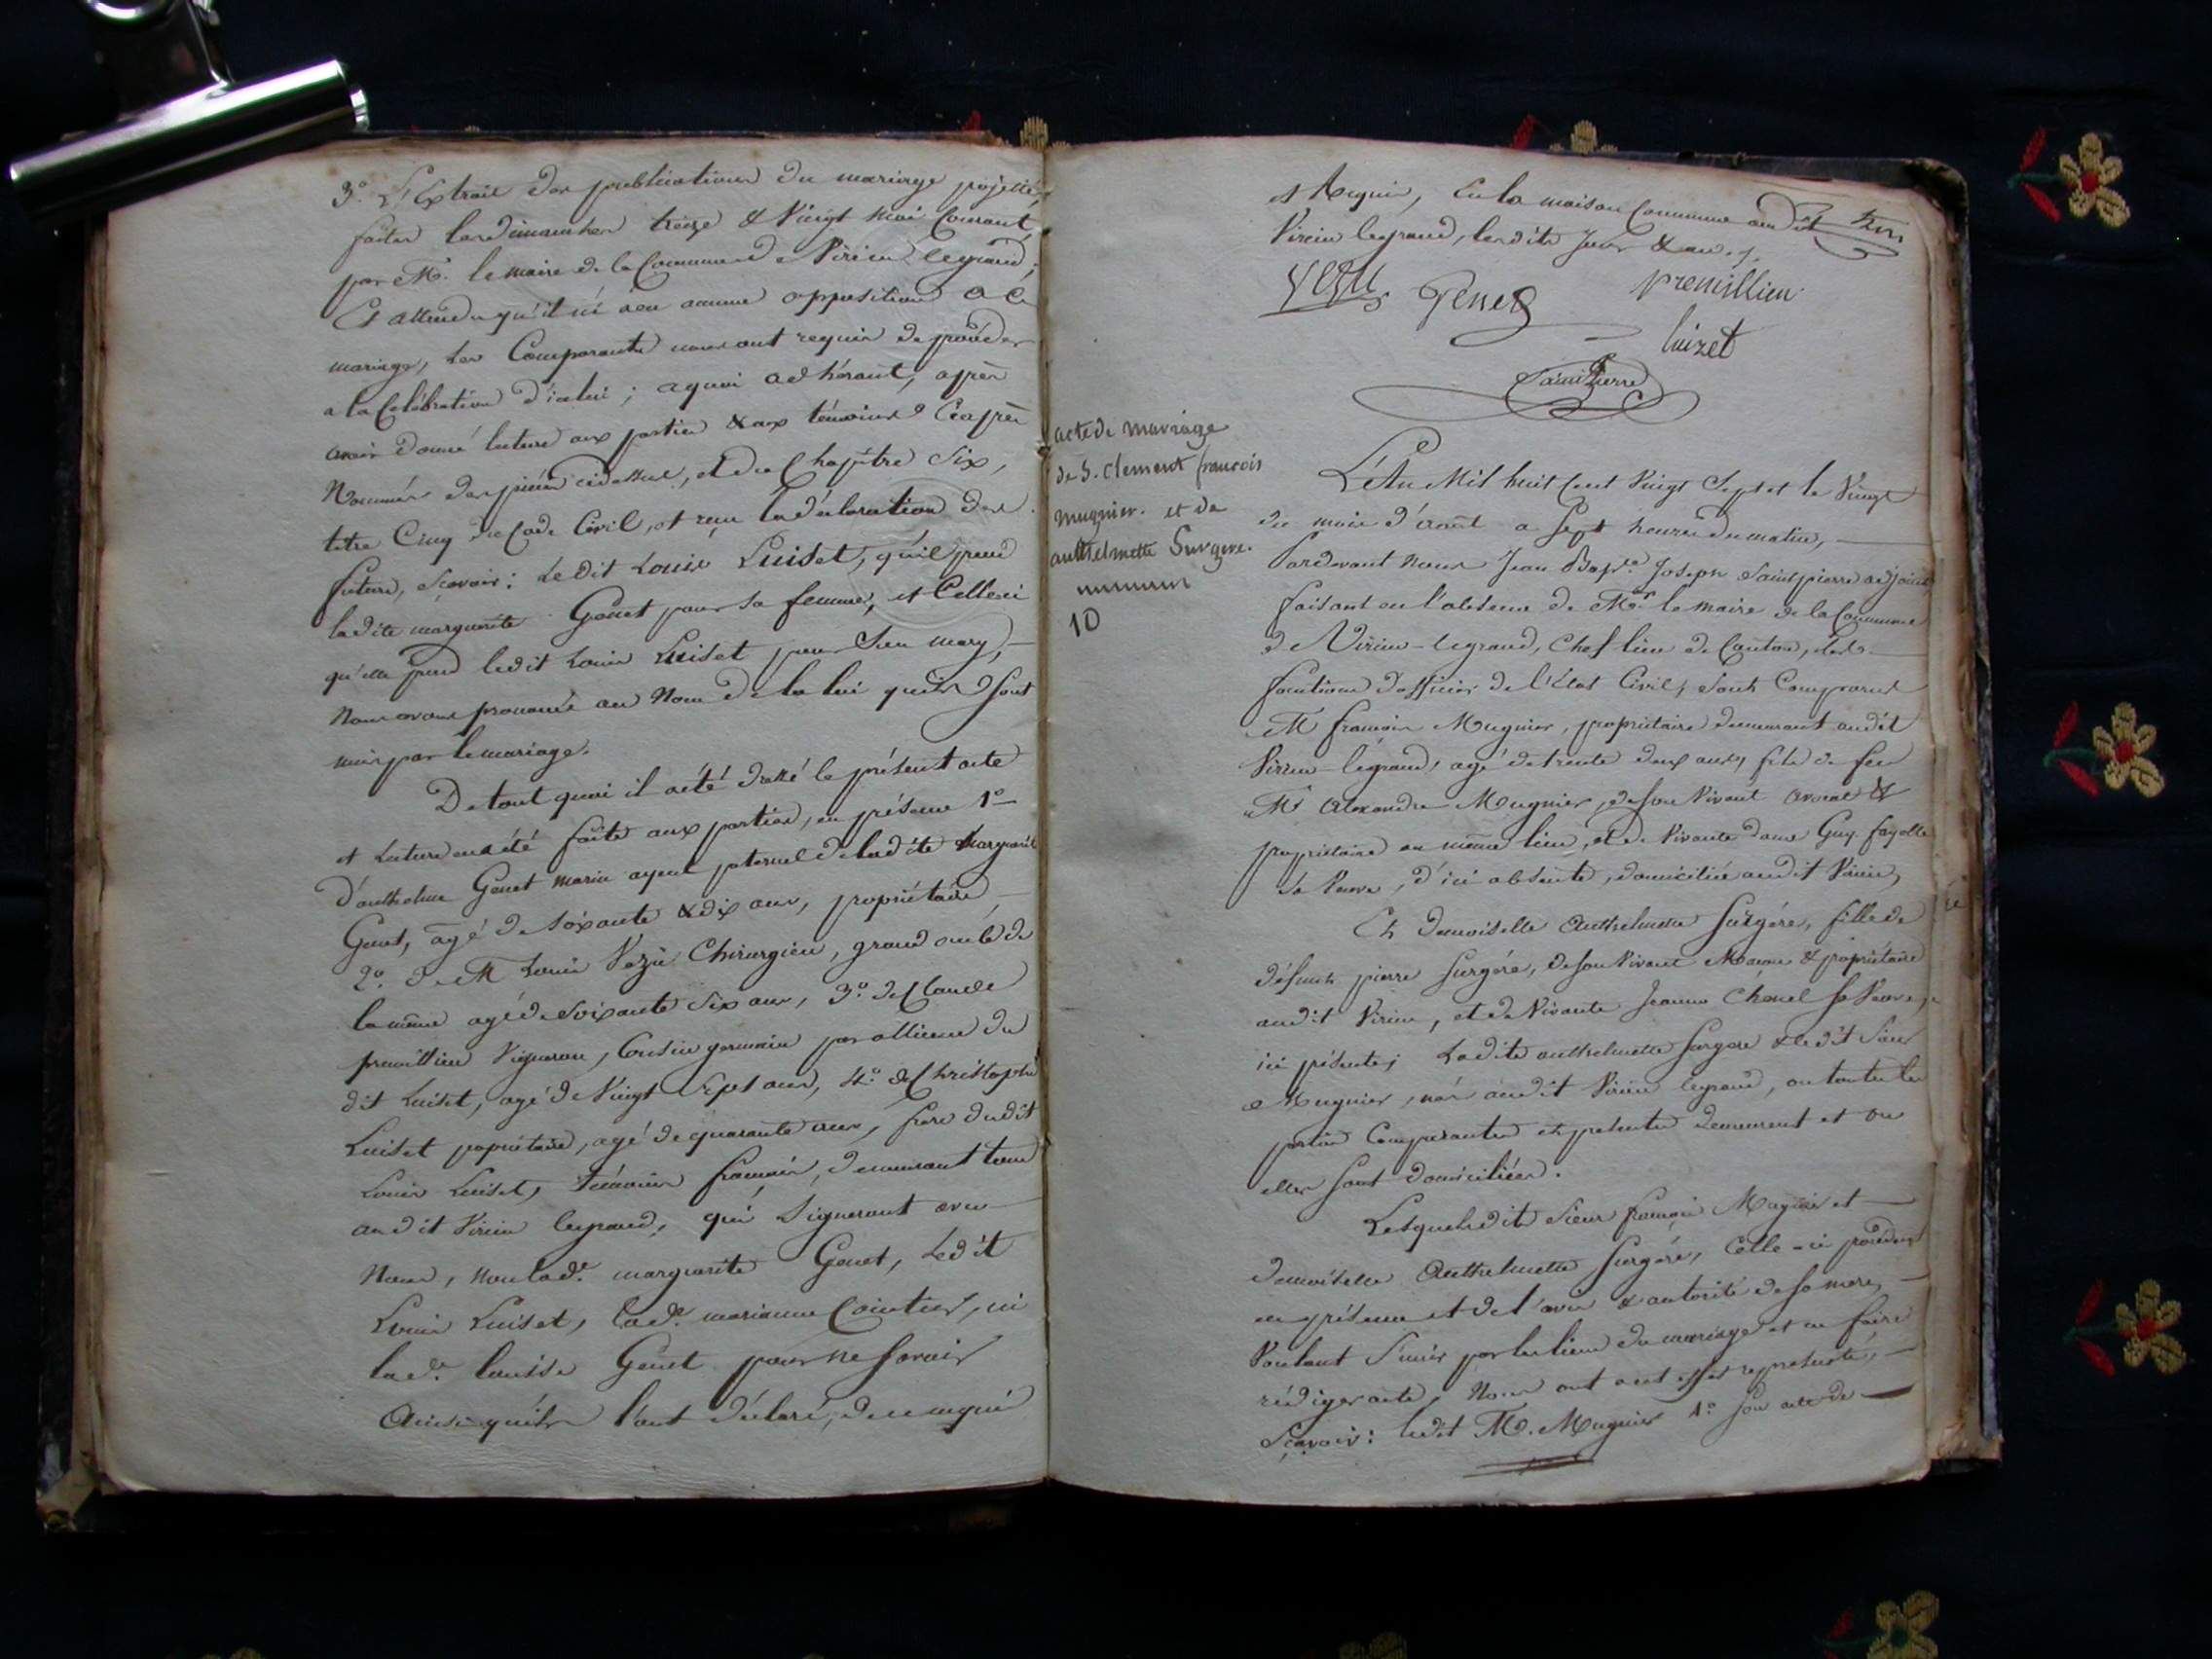 3.º L'Extrait des publications du mariage projetté,
faites les dimanches treize & vingt mai Courant,
par Mr. le maire de la Commune de Virieu legrand;
Et attendu qu'il n'i a eu aucune opposition a ce
mariage, les Comparants nous ont requis de procéder
a la Célébration d'icelui; a quoi adhérant, apprès
avoir donné lecture aux parties & aux témoins Ciaprès
Nommés des pièces cidessus, et du Chapitre six,
titre Cinq du Code Civil, et reçu la déclaration des
futurs, Sçavoir: Ledit Louis Luiset, qu'il prend
ladite marguerite Genet pour sa femme, et Celleci
qu'elle prend ledit Louis Luiset pour son mary,
Nous avons prononcé au Nom de la loi qu'ils sont
unis par le mariage.
De tout quoi il a été dressé le présent acte
et Lecture en a été faite aux parties, en présence 1º
d'anthelme Genet marin ayeul paternel de ladite Marguerite
Genet, âgé de soixante & dix ans, propriétaire,
2º. De Mr Louis Vezu Chirurgien, grand oncle de
la même agé de soixante six ans, 3º. de Claude
premillieu Vigneron, Cousin germain par alliance du
dit Luiset, agé de Vingt sept ans, 4º. de Christophe
Luiset propriétaire, agé de quarante ans, frere dudit
Louis Luiset, témoins français, demeurant tous
audit Virieu legrand, qui signeront avec
Nous, non lade. marguerite Genet, Ledit
Louis Luiset, lade. marianne Cointier, ni
lade. louise Genet pour ne savoir
Ainsi qu'ils l'ont déclaré, de ce enquis
et Requis, En la maison Commune audit
Virieu legrand, lesdits Jour & an.
Vezu Genet premillieu
luizet
Saintpierre
acte de mariage
de S. clement françois
mugnier. et de
anthelmette Surgere.
10
L'An Mil huit Cent Vingt Sept et le Vingt
du mois d'août a Sept heures du matin,
Pardevant Nous Jean Bapte. Joseph Saintpierre adjoint
faisant en l'absence de Mr. le Maire de la Commune
de Virieu-legrand, Chef lieu de Canton, les
fonctions d'officier de l'état Civil, sont Comparus
Mr françois Mugnier, propriétaire demeurant audit
Virieu-legrand, agé de trente deux ans, fils de feu
Mr Alexandre Mugnier, de son Vivant avocat &
propriétaire au même lieu, et de Vivante dame Guy. fayolle
sa Veuve, d'ici absente, domiciliée audit Virieu,
Et Demoiselle Anthelmette Surgère, fille de
défunt pierre Surgère, de son Vivant Macon & propriétaire
audit Virieu, et de Vivante Jeanne Chenel sa Veuve,
ici présente; Ladite anthelmette Surgère & ledit Sieur
Mugnier, nés audit Virieu legrand, ou toutes les
parties Comparantes et presentes demeurent et ou
elles sont domiciliées.
Lesquels dits Sieur françois Mugnier et
demoiselle Anthelmette Surgère, Celle-ci procédant
en présence et de l'avis & autorité de sa mere,
Voulant s'unir par les liens du mariage et en faire
rédiger acte, Nous ont a cet effet representé,
Sçavoir: ledit Mr. Mugnier 1º son acte de